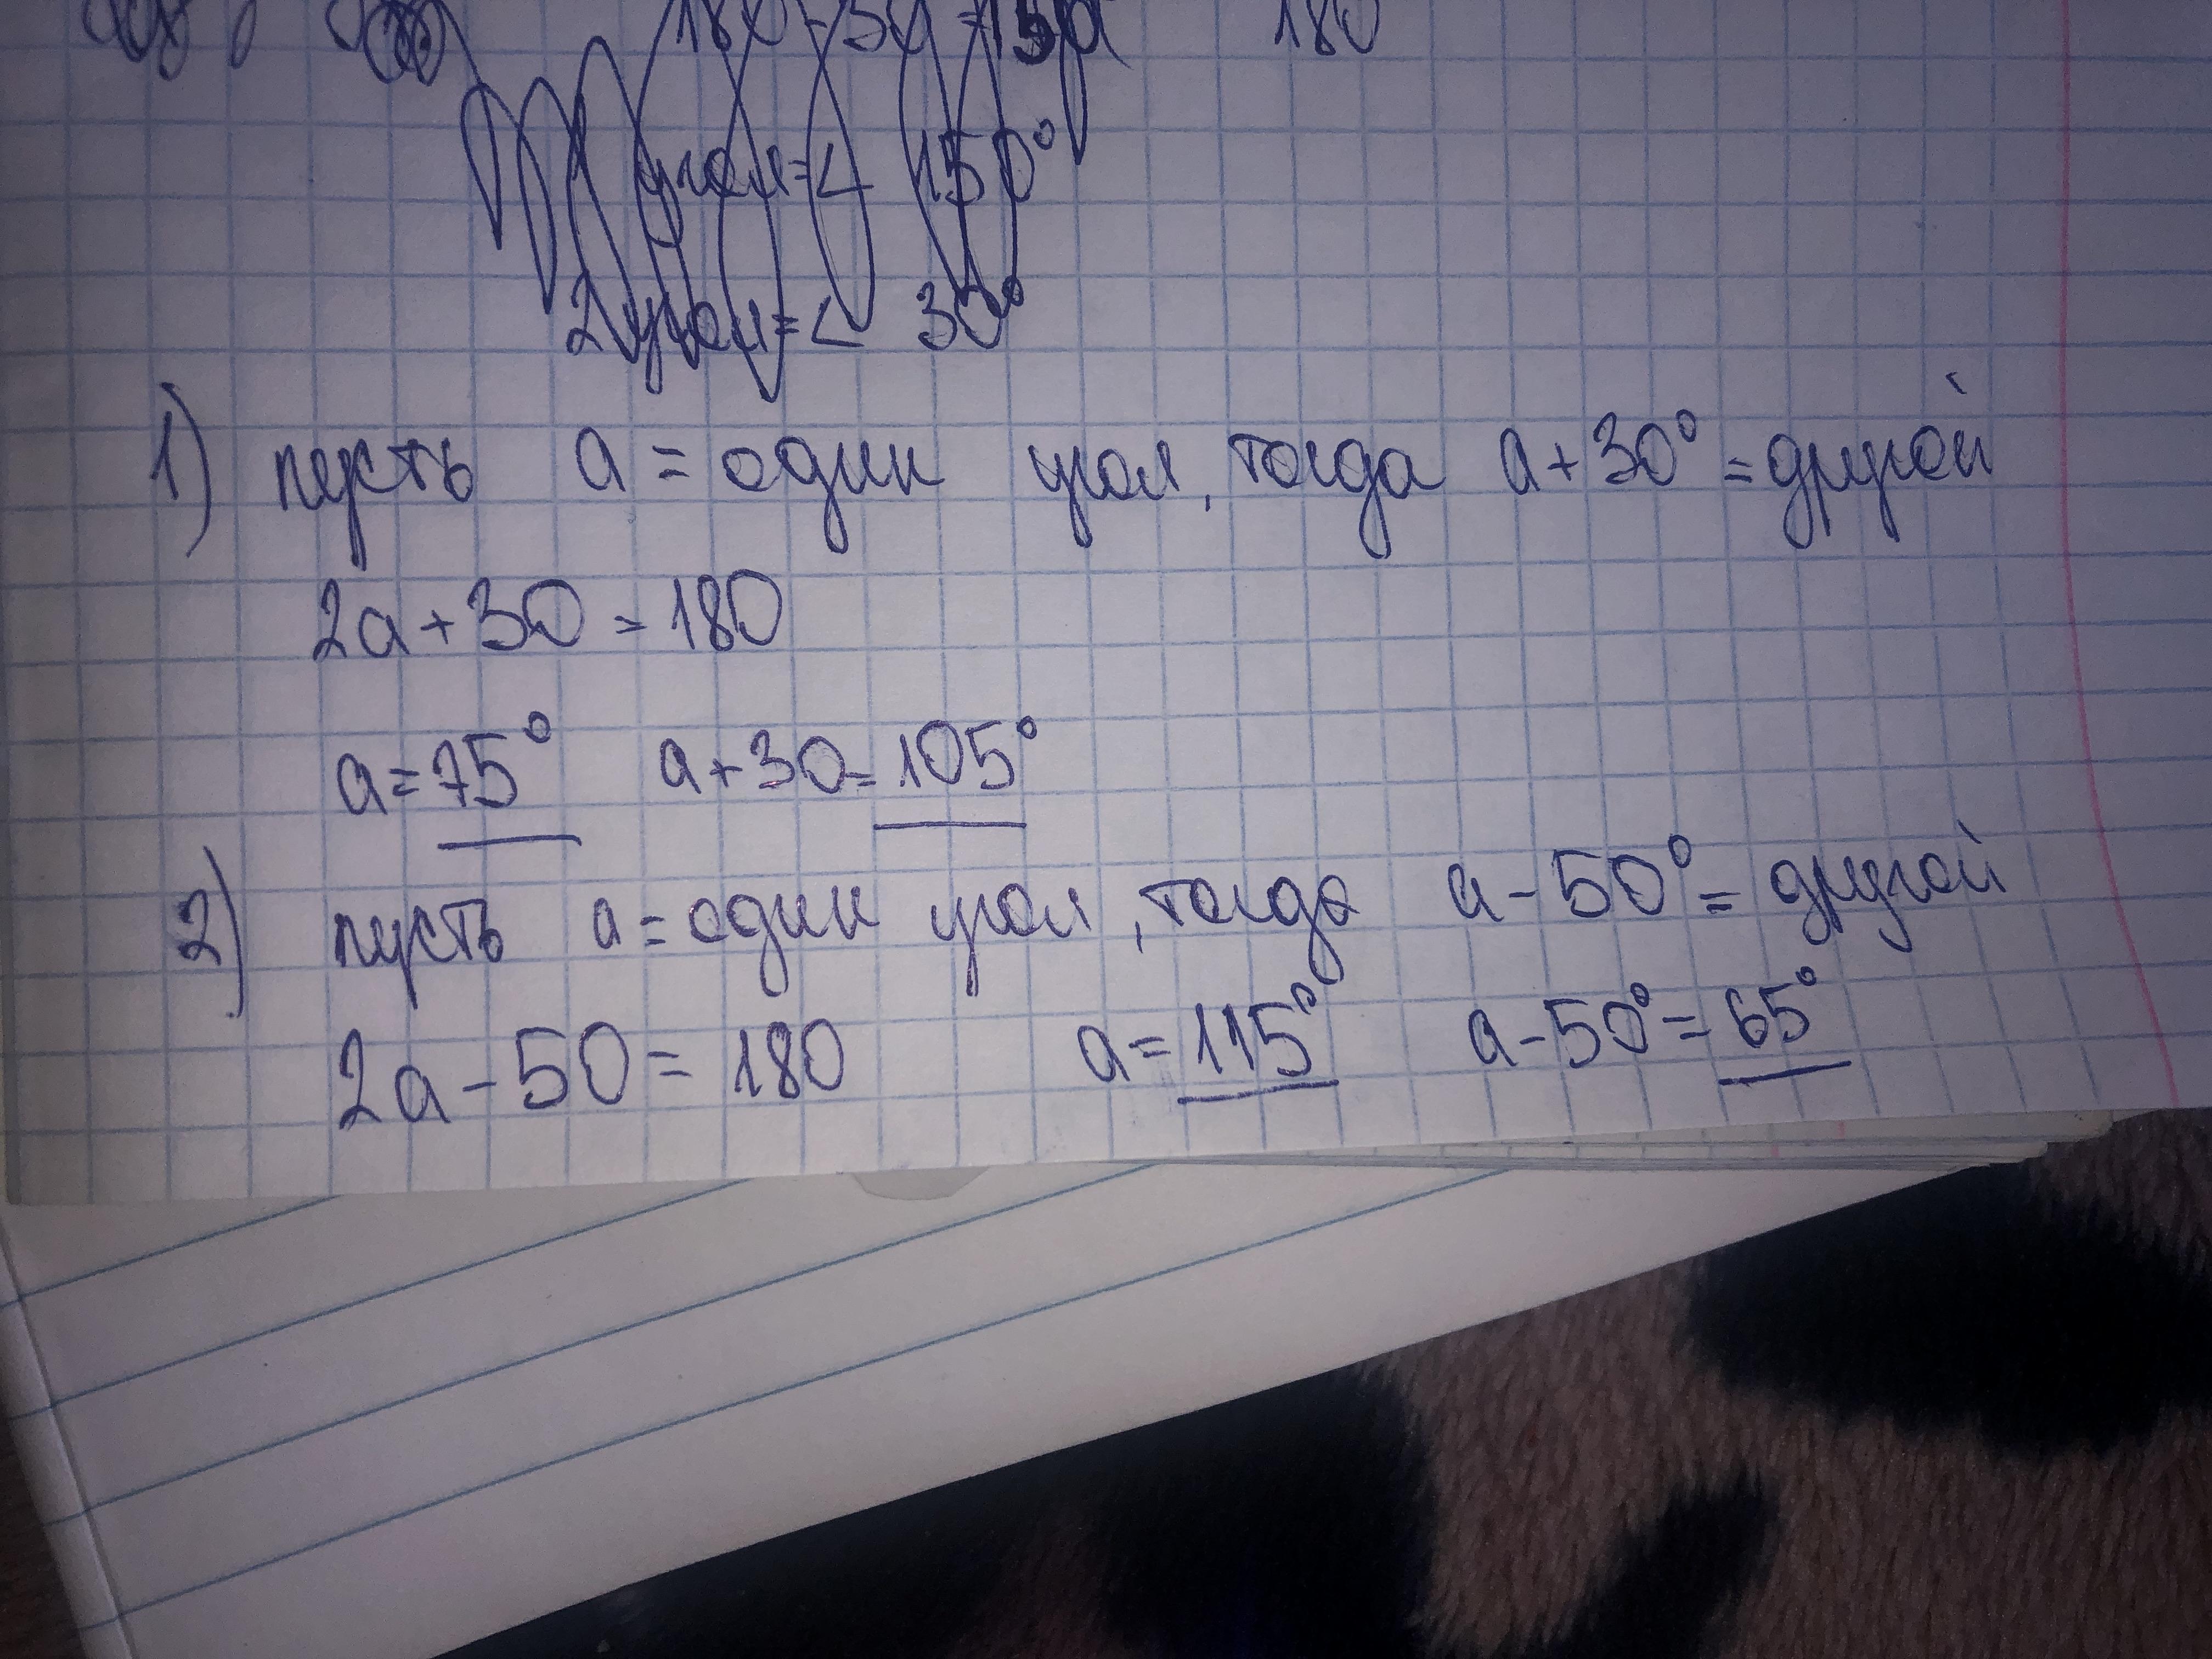 180
угол=< 150°
2угол=< 30°
1) пусть a = один угол, тогда a+30° = другой
2a+30 = 180
a=75° a+30=105°
2) пусть a=один угол, тогда a-50°= другой
2a-50= 180 a=115° a-50°=65°